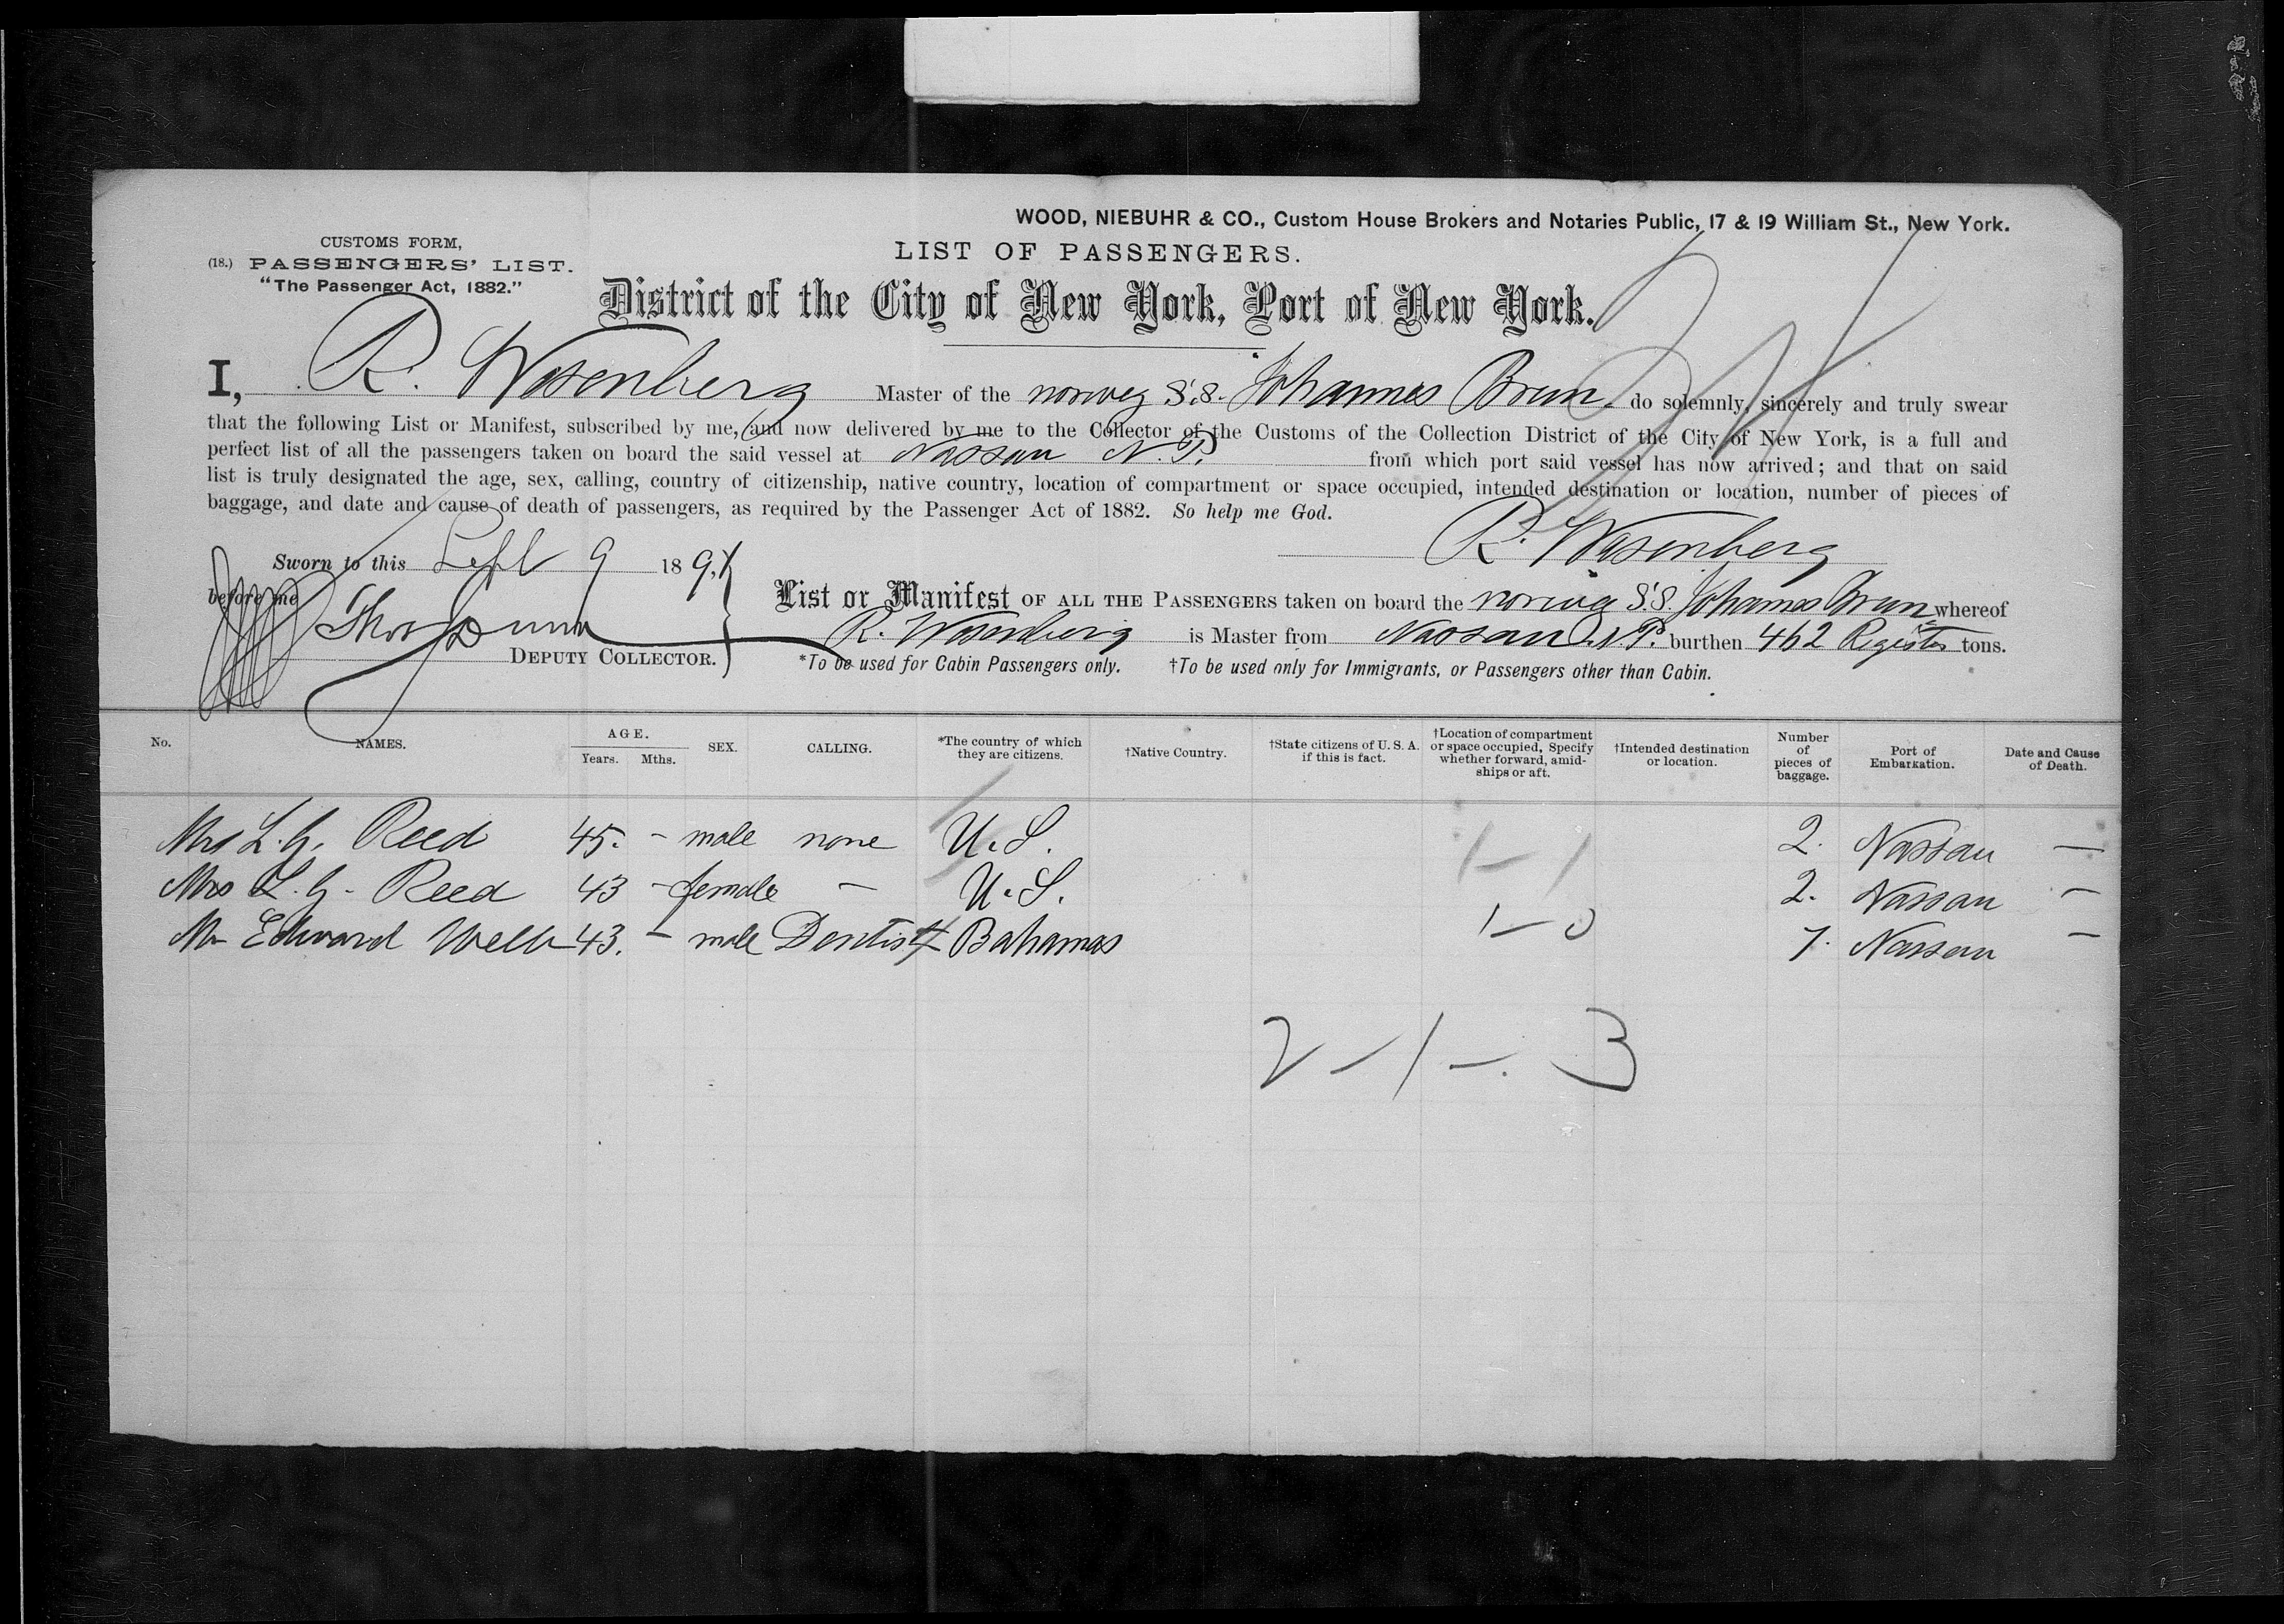 WOOD, NIEBUHR & CO., Custom House Brokers and Notaries Public, 17 & 19 William St., New York.
CUSTOMS FORM,
LIST OF PASSENGERS.
(18.) PASSENGERS' LIST.
"The Passenger Act, 1882."
District of the City of New York, Port of New York.
I, R. Wasenberg Master of the norweg S.S. Johannes Brun do solemnly, sincerely and truly swear
that the following List or Manifest, subscribed by me, and now delivered by me to the Collector of the Customs of the Collection District of the City of New York, is a full and
perfect list of all the passengers taken on board the said vessel at Nassau N.P. from which port said vessel has now arrived; and that on said
list is truly designated the age, sex, calling, country of citizenship, native country, location of compartment or space occupied, intended destination or location, number of pieces of
baggage, and date and cause of death of passengers, as required by the Passenger Act of 1882. So help me God.
R. Wasenberg
Sworn to this Sept 9 189
before me
List or Manifest OF ALL THE PASSENGERS taken on board the norweg S.S. Johannes Brun whereof
R. Wasenberg is Master from Nassau N.P. burthen 462 Register tons.
DEPUTY COLLECTOR.
*To be used for Cabin Passengers only. †To be used only for Immigrants, or Passengers other than Cabin.
No. NAMES. AGE. Years. Mths. SEX. CALLING. *The country of which they are citizens. †Native Country. †State citizens of U.S.A. if this is fact. †Location of compartment or space occupied, Specify whether forward, amid-ships or aft. †Intended destination or location. Number of pieces of baggage. Port of Embarkation. Date and Cause of Death.
L. G. Reed 45. - male none U.S. 1 - 1 2. Nassau —
Mrs L. G. Reed 43 - female - U.S. 2. Nassau —
Mr Edward 43. - male Dentist Bahamas 1 - 0 Nassau —
2 - 1 - 3